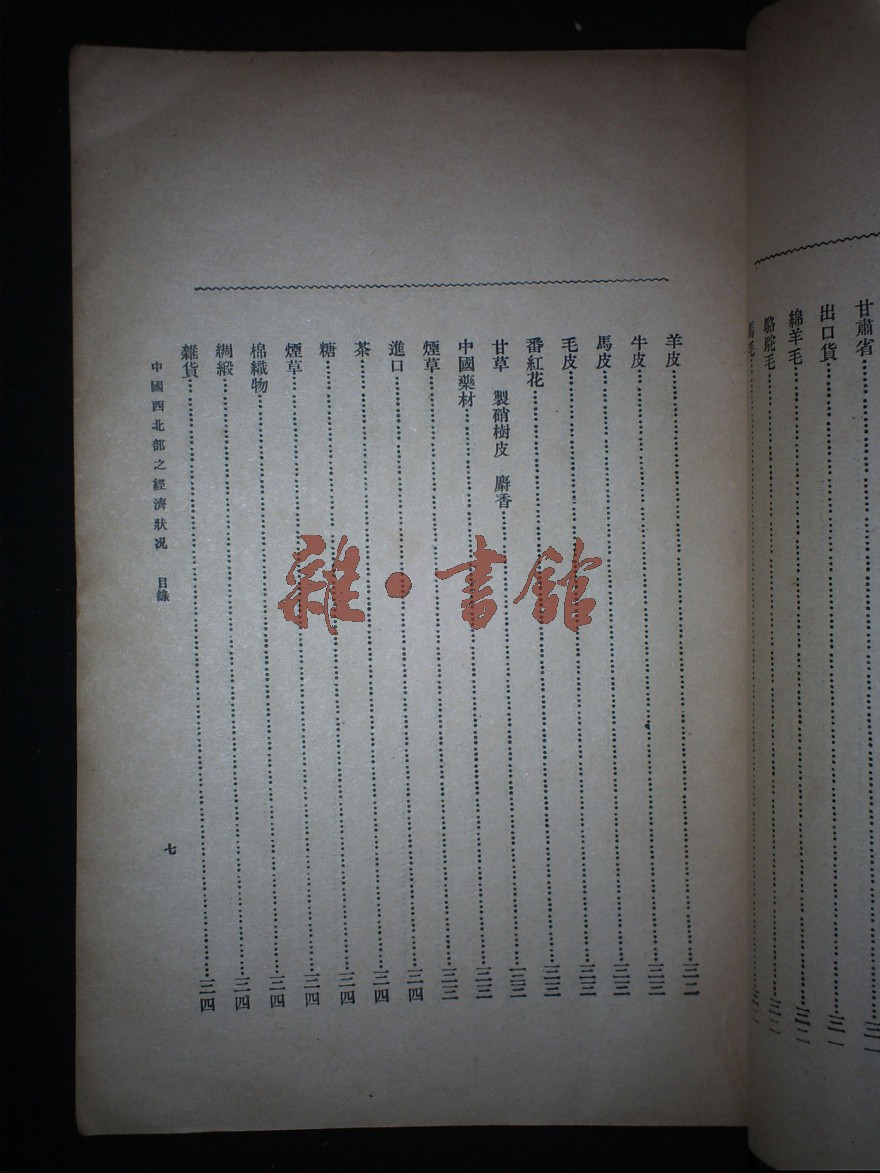 甘肅省……三一
出口貨……三一
綿羊毛……三二
駱駝毛……三二
羊皮……三二
牛皮……三三
馬皮……三三
毛皮……三三
番紅花……三三
甘草　製硝樹皮　麝香……三三
中國藥材……三三
煙草……三三
進口……三四
茶……三四
糖……三四
煙草……三四
棉織物……三四
綢緞……三四
雜貨……三四
中國西北部之經濟狀况　目錄
七
雜·書館